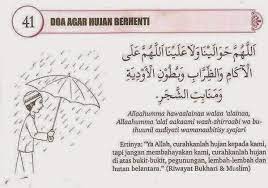 41
DOA AGAR HUJAN BERHENTI
اَللّٰهُمَّ حَوَالَيْنَا وَلَا عَلَيْنَا اَللّٰهُمَّ عَلَى
الْآكَامِ وَالظِّرَابِ وَبُطُوْنِ الْأَوْدِيَةِ
وَمَنَابِتِ الشَّجَرِ
Allaahumma hawaalainaa walan 'alainan,
Allaahumma 'alal aakaami wash-shirraabi wa bu-
thuunil audiyati wamanaabitisy syajari
Ertinya: "Ya Allah, curahkanlah hujan kepada kami,
tapi jangan membahayakan kami, curahkanlah hujan
di atas bukit-bukit, pegunungan, lembah-lembah dan
hutan belantara." (Riwayat Bukhari & Muslim)